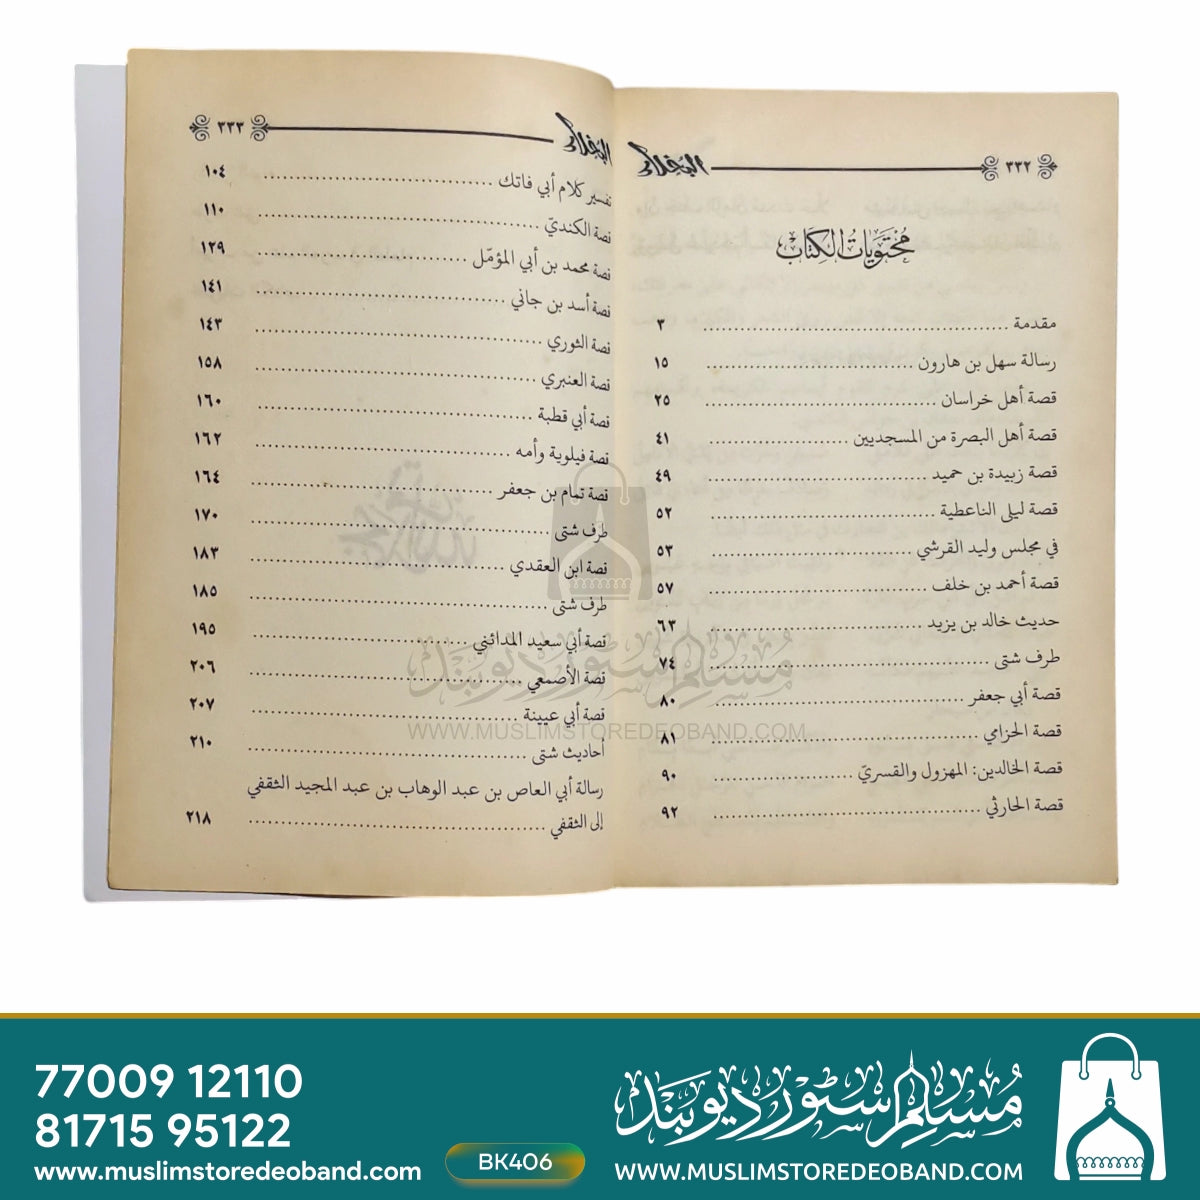 ٣٣٢ البخلاء
محتويات الكتاب
مقدمة ........ ٣
رسالة سهل بن هارون ........ ١٥
قصة أهل خراسان ........ ٢٥
قصة أهل البصرة من المسجديين ........ ٤١
قصة زبيدة بن حميد ........ ٤٩
قصة ليلى الناعطية ........ ٥٢
في مجلس وليد القرشي ........ ٥٣
قصة أحمد بن خلف ........ ٥٧
حديث خالد بن يزيد ........ ٦٣
طرف شتى ........ ٧٤
قصة أبي جعفر ........ ٨٠
قصة الحزامي ........ ٨١
قصة الخالدين: المهزول والقسريّ ........ ٩٠
قصة الحارثي ........ ٩٢
البخلاء ٣٣٣
تفسير كلام أبي فاتك ........ ١٠٤
قصة الكنديّ ........ ١١٠
قصة محمد بن أبي المؤمّل ........ ١٢٩
قصة أسد بن جاني ........ ١٤١
قصة الثوري ........ ١٤٣
قصة العنبري ........ ١٥٨
قصة أبي قطبة ........ ١٦٠
قصة فيلوية وأمه ........ ١٦٢
قصة تمام بن جعفر ........ ١٦٤
طرف شتى ........ ١٧٠
قصة ابن العقدي ........ ١٨٣
طرف شتى ........ ١٨٥
قصة أبي سعيد المدائني ........ ١٩٥
قصة الأصمعي ........ ٢٠٦
قصة أبي عيينة ........ ٢٠٧
أحاديث شتى ........ ٢١٠
رسالة أبي العاص بن عبد الوهاب بن عبد المجيد الثقفي
إلى الثقفي ........ ٢١٨
مسلم سٹور دیوبند
WWW.MUSLIMSTOREDEOBAND.COM
77009 12110
81715 95122
www.muslimstoredeoband.com
BK406
مسلم سٹور دیوبند
WWW.MUSLIMSTOREDEOBAND.COM